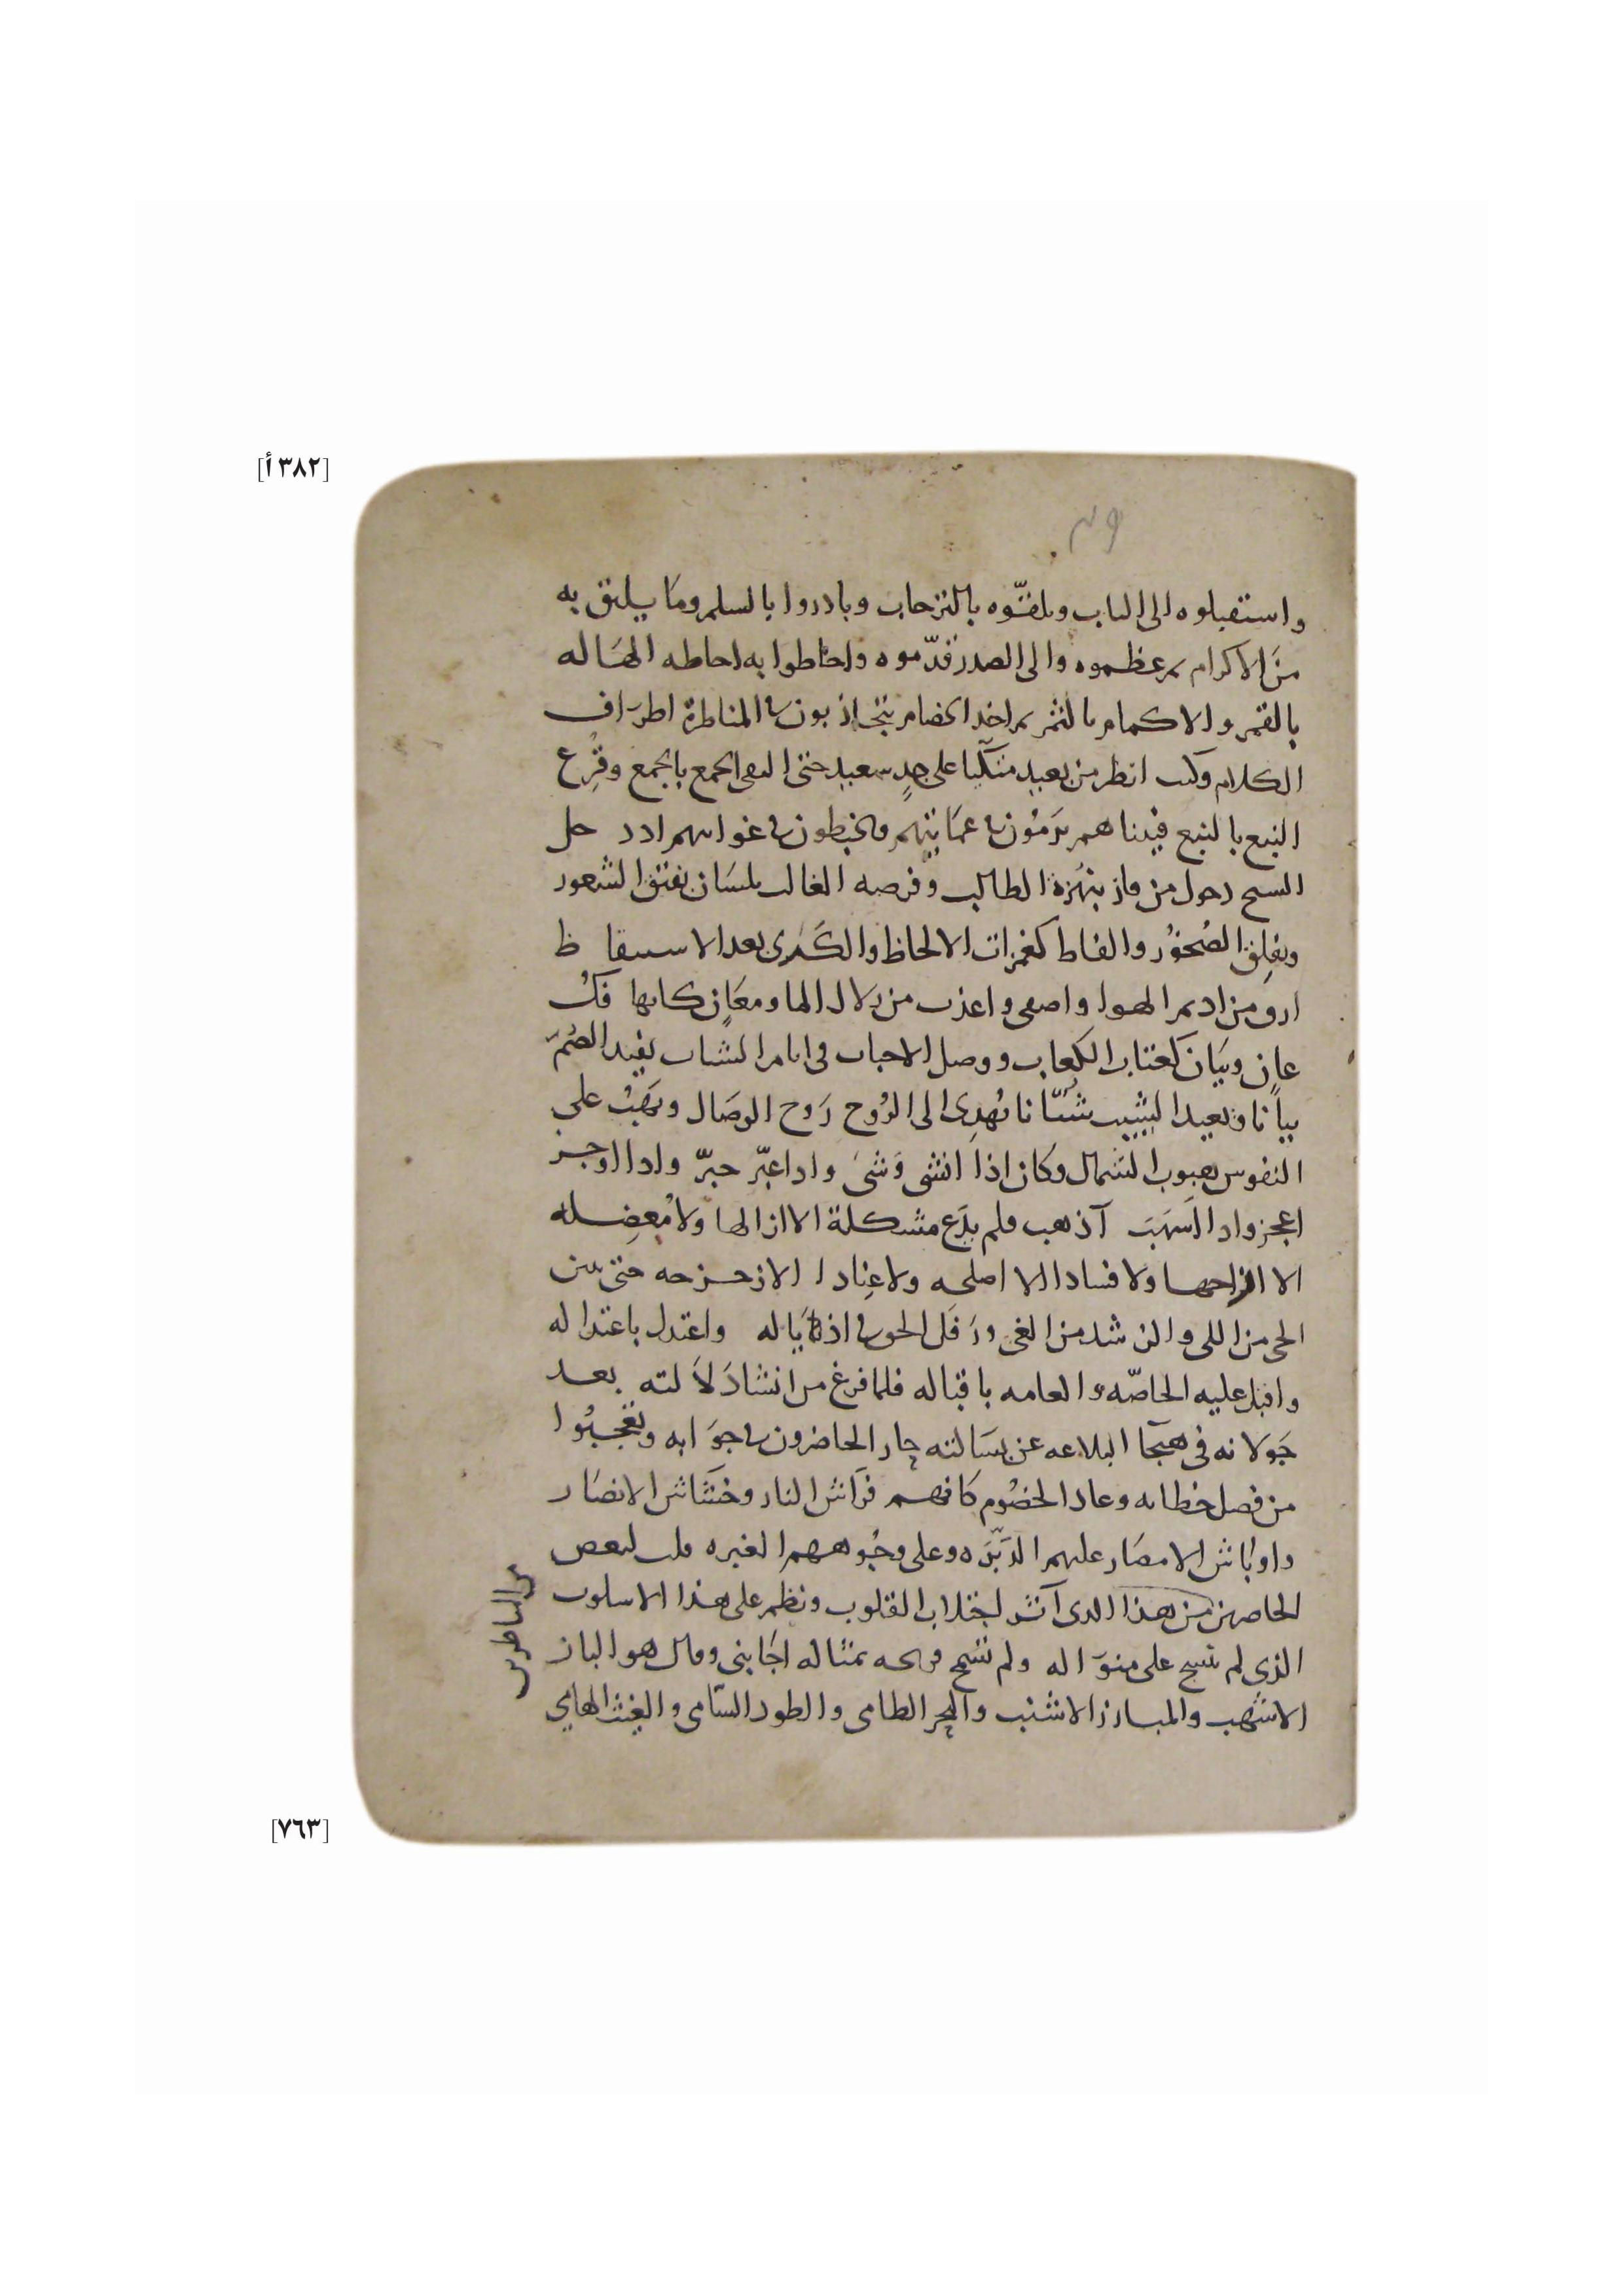 [٣٨٢ أ]
واستقبلوه الى الباب وتلقّوه بالترحاب وبادروا بالسلم وما يليق به
من الاكرام ثم عظموه والى الصدر قدّموه واحاطوا به احاطه الهاله
بالقمر والاكمام بالثمر ثم اخذ الخصام يتجاذبون في المناظرة اطراف
الكلام وكنت انظر من بعيد متكّيا على جدٍ سعيد حتى التقى الجمع بالجمع وقُرِع
النبع بالنبع فبينا هم يرمون في عمايتهم ويخبطون في غوايتهم اذ دخل
الشيخ دخول من فاز بنُهزة الطالب وفرصه الغالب بلسان يفتق الشعور
ويفلق الصخور والفاظ كغمزات الالحاظ والكرى بعد الاستيقاظ
ارق من اديم الهوا واصفى واعذب من زلال الما ومعانٍ كانها فك
عانٍ وبيان كعتاب الكعاب ووصل الاحباب في ايام الشباب يفيد الصُمّ
بيانا ويعيد الشيب شبّانا تُهدِى الى الرُوح رَوح الوصال وتهبّ على
النفوس هبوب الشمال وكان اذا انشى وَشىَ واذا عبّر حبرّ واذا اوجز
اعجز واذا اَسهَبَ آذهب فلم يدَع مشكلة الا ازالها ولا مُعضِله
الا ازاحها ولا فسادا الا اصلحه ولا عِنادا الا زحزحه حتى تبين
الحى من اللى والرشد من الغى ورَفَل الحق في اذياله واعتدل باعتداله
واقبل عليه الخاصّه والعامه باقباله فلما فرغ من انشا دَلاَلته بعد
جَولانه في هيجا البلاغه عن بسالته حار الحاضرون في جوابه وتعجبُوا
من فصل خطابه وعاد الخصُوم كانهم فَراش النار وخَشاش الابصار
واوباش الامصار عليهم الدَبَرَه وعلى وجُوههم الغبره قلت لبعض
الحاضرين من هذا الذى آثر اختلاب القلوب ونظم على هذا الاسلوب
الذى لم ينسج على منوَاله ولم تسَمح قريحه بمثاله اجَابنى وقال هو الباز
الاشهب والمبارز الاشنب والبحر الطامى والطود السّامى والغيث الهامي
من الناظرين
[٧٦٣]